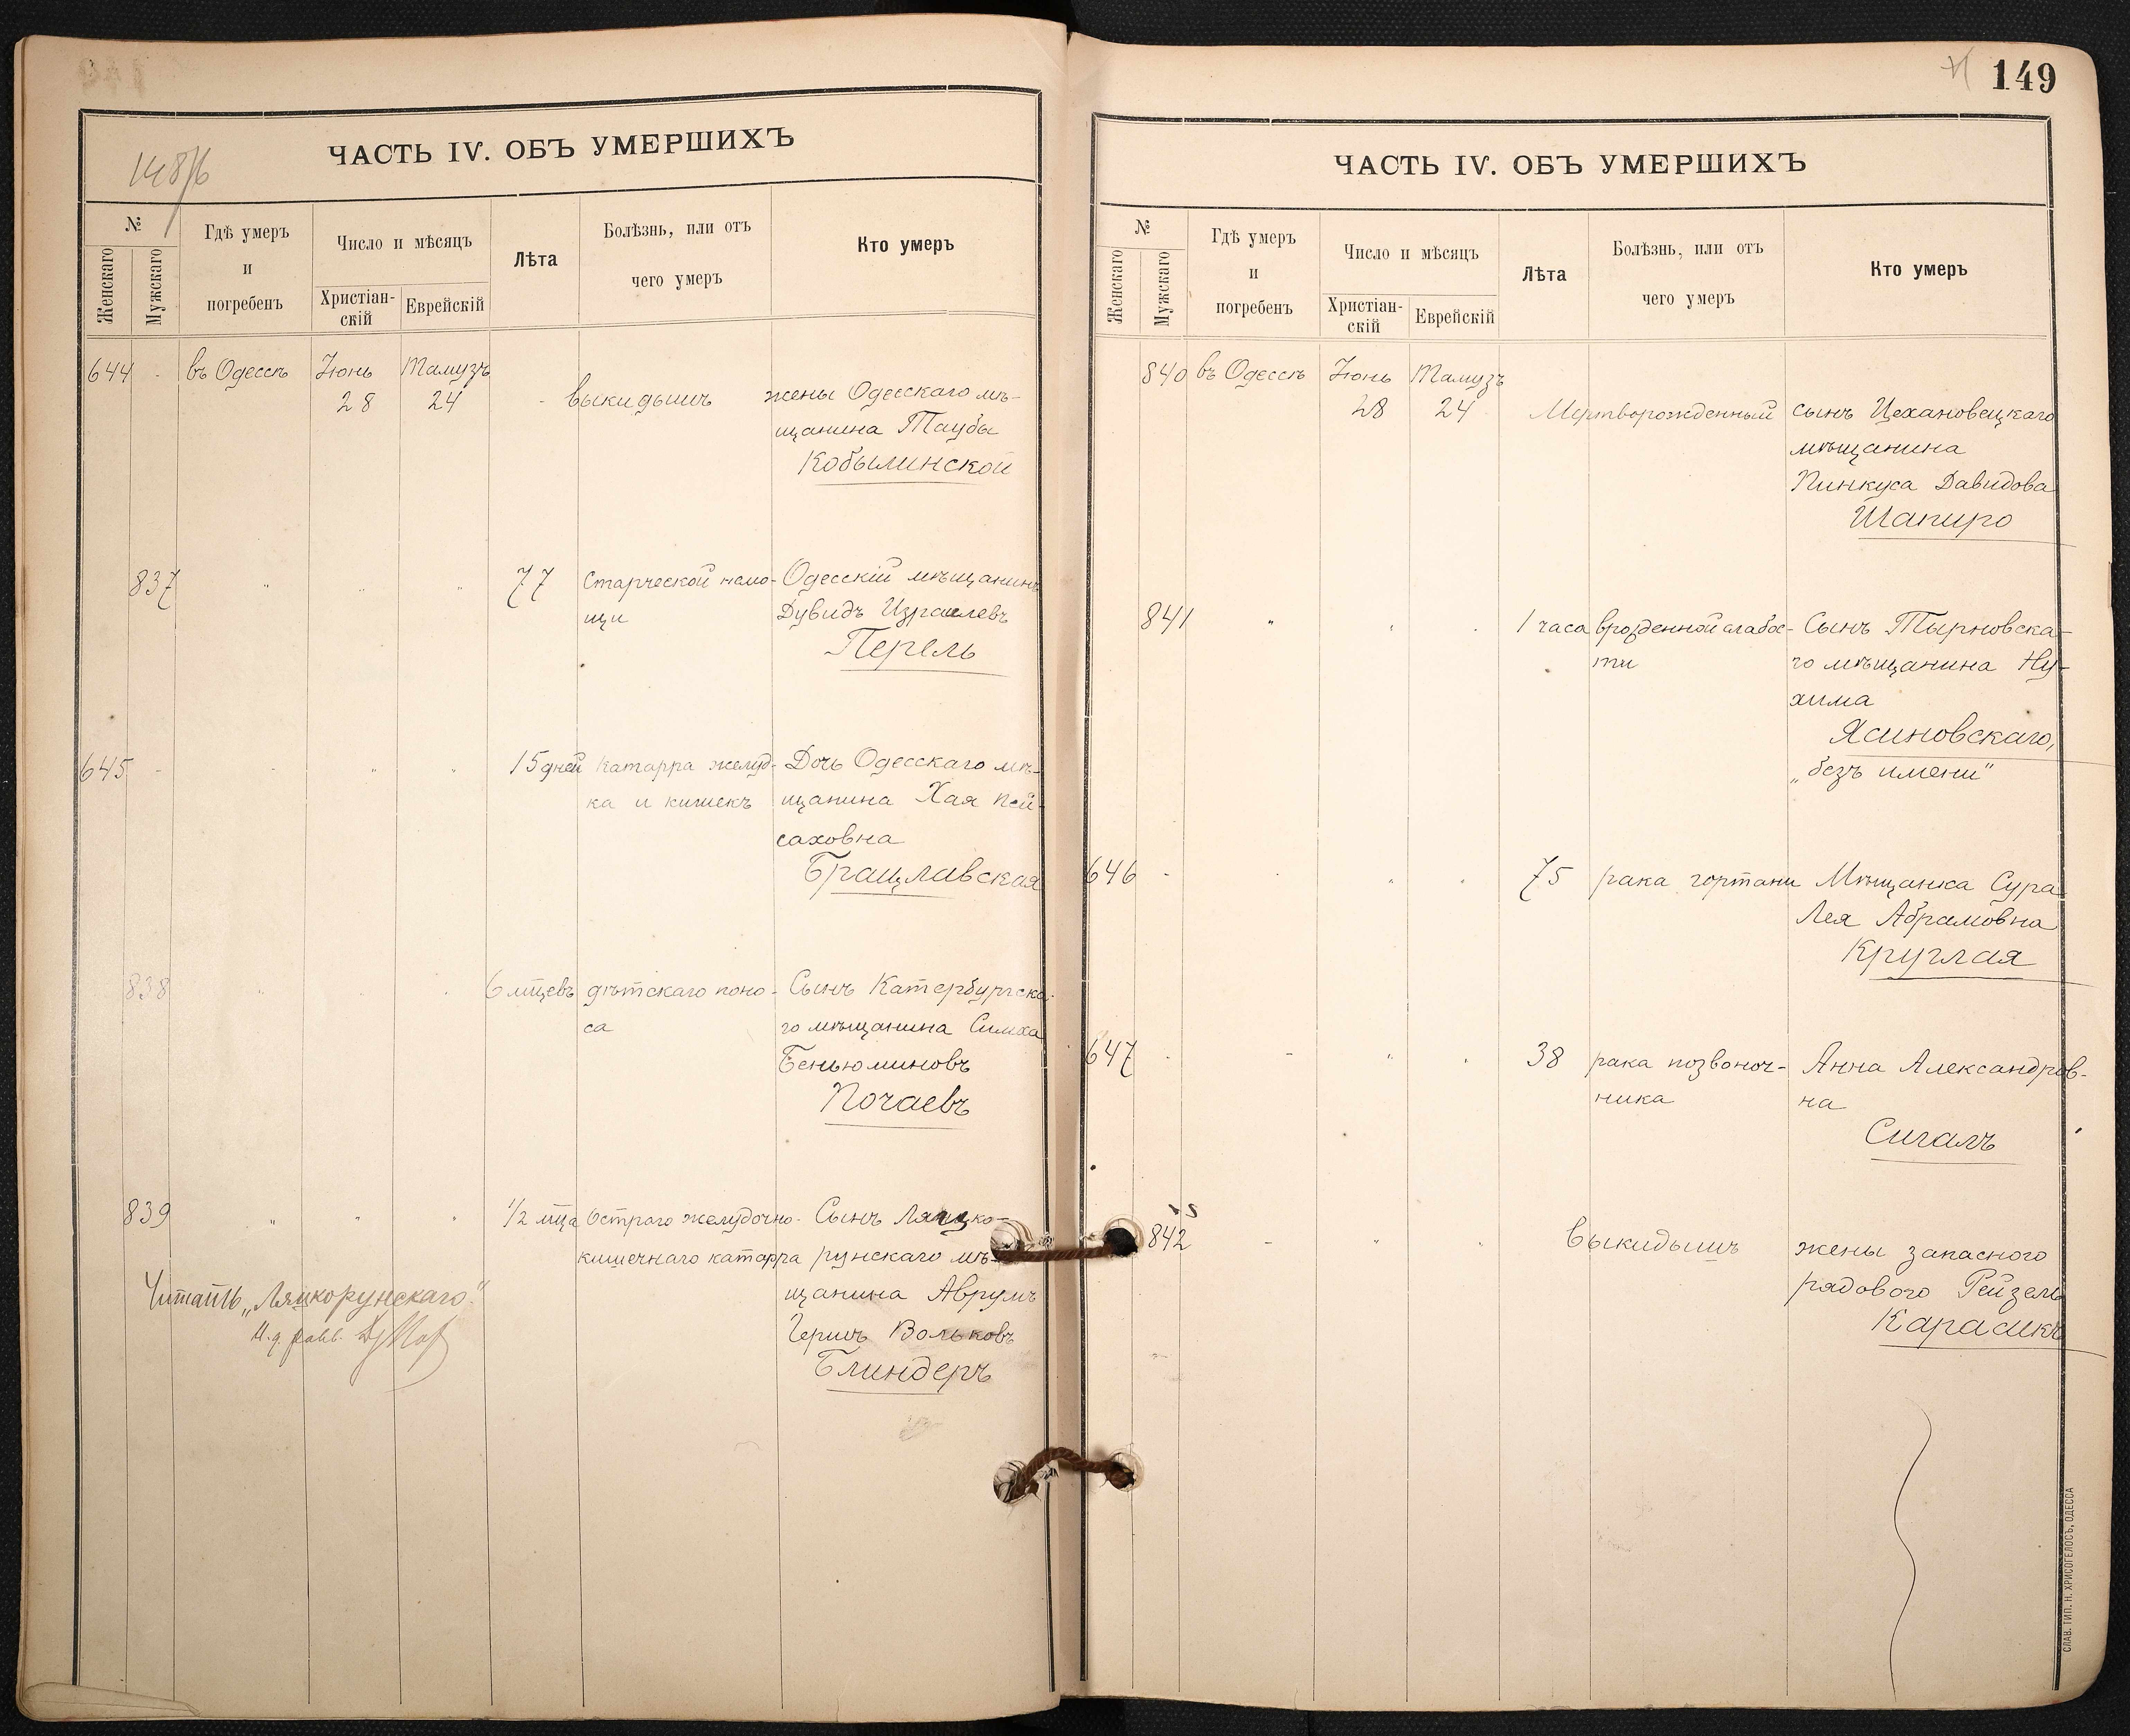 148/б
ЧАСТЬ IV. ОБЪ УМЕРШИХЪ
№
Женскаго
Мужскаго
Гдѣ умеръ
и
погребенъ
Число и мѣсяцъ
Христіан-
скій
Еврейскій
Лѣта
Болѣзнь, или отъ
чего умеръ
Кто умеръ
644 - въ Одессѣ Іюнь Тамузъ
28 24 - выкидышъ жены Одесскаго мѣ-
щанина Таубы
Кобылинской
837 " " " 77 Старческой немо- Одесскій мѣщанинъ
щи Дувидъ Израилевъ
Перель
645 - - " " 15 дней катарра желуд- Дочь Одесскаго мѣ-
ка и кишекъ щанина Хая Пей-
саховна
Брацлавская
838 " " " 6 мцевъ дѣтскаго поно- Сынъ Катербургска-
са го мѣщанина Симха
Беньюминовъ
Почаевъ
839 " " " 1/2 мца Остраго желудочно- Сынъ Ляцко-
кишечнаго катарра рунскаго мѣ-
щанина Аврумъ
Гершъ Вольковъ
Блиндеръ
Читать „Ляцкорунскаго."
И. д. равв.
149
ЧАСТЬ IV. ОБЪ УМЕРШИХЪ
№
Женскаго
Мужскаго
Гдѣ умеръ
и
погребенъ
Число и мѣсяцъ
Христіан-
скій
Еврейскій
Лѣта
Болѣзнь, или отъ
чего умеръ
Кто умеръ
840 въ Одессѣ Іюнь Тамузъ
28 24 Мертворожденный сынъ Цехановецкаго
мѣщанина
Пинкуса Давидова
Шапиро
841 " " " 1 часа врожденной слабос- Сынъ Тырновска-
ти го мѣщанина Ну-
хима
Ясиновскаго,
„безъ имени"
646 - - " " 75 рака гортани Мѣщанка Сура
Лея Абрамовна
Круглая
647 - - " " 38 рака позвоноч- Анна Александров-
ника на
Сигалъ
842 - " " выкидышъ жены запасного
рядового Рейзель
Карасикъ
СЛАВ. ТИП. Н. ХРИСОГЕЛОСЪ, ОДЕССА